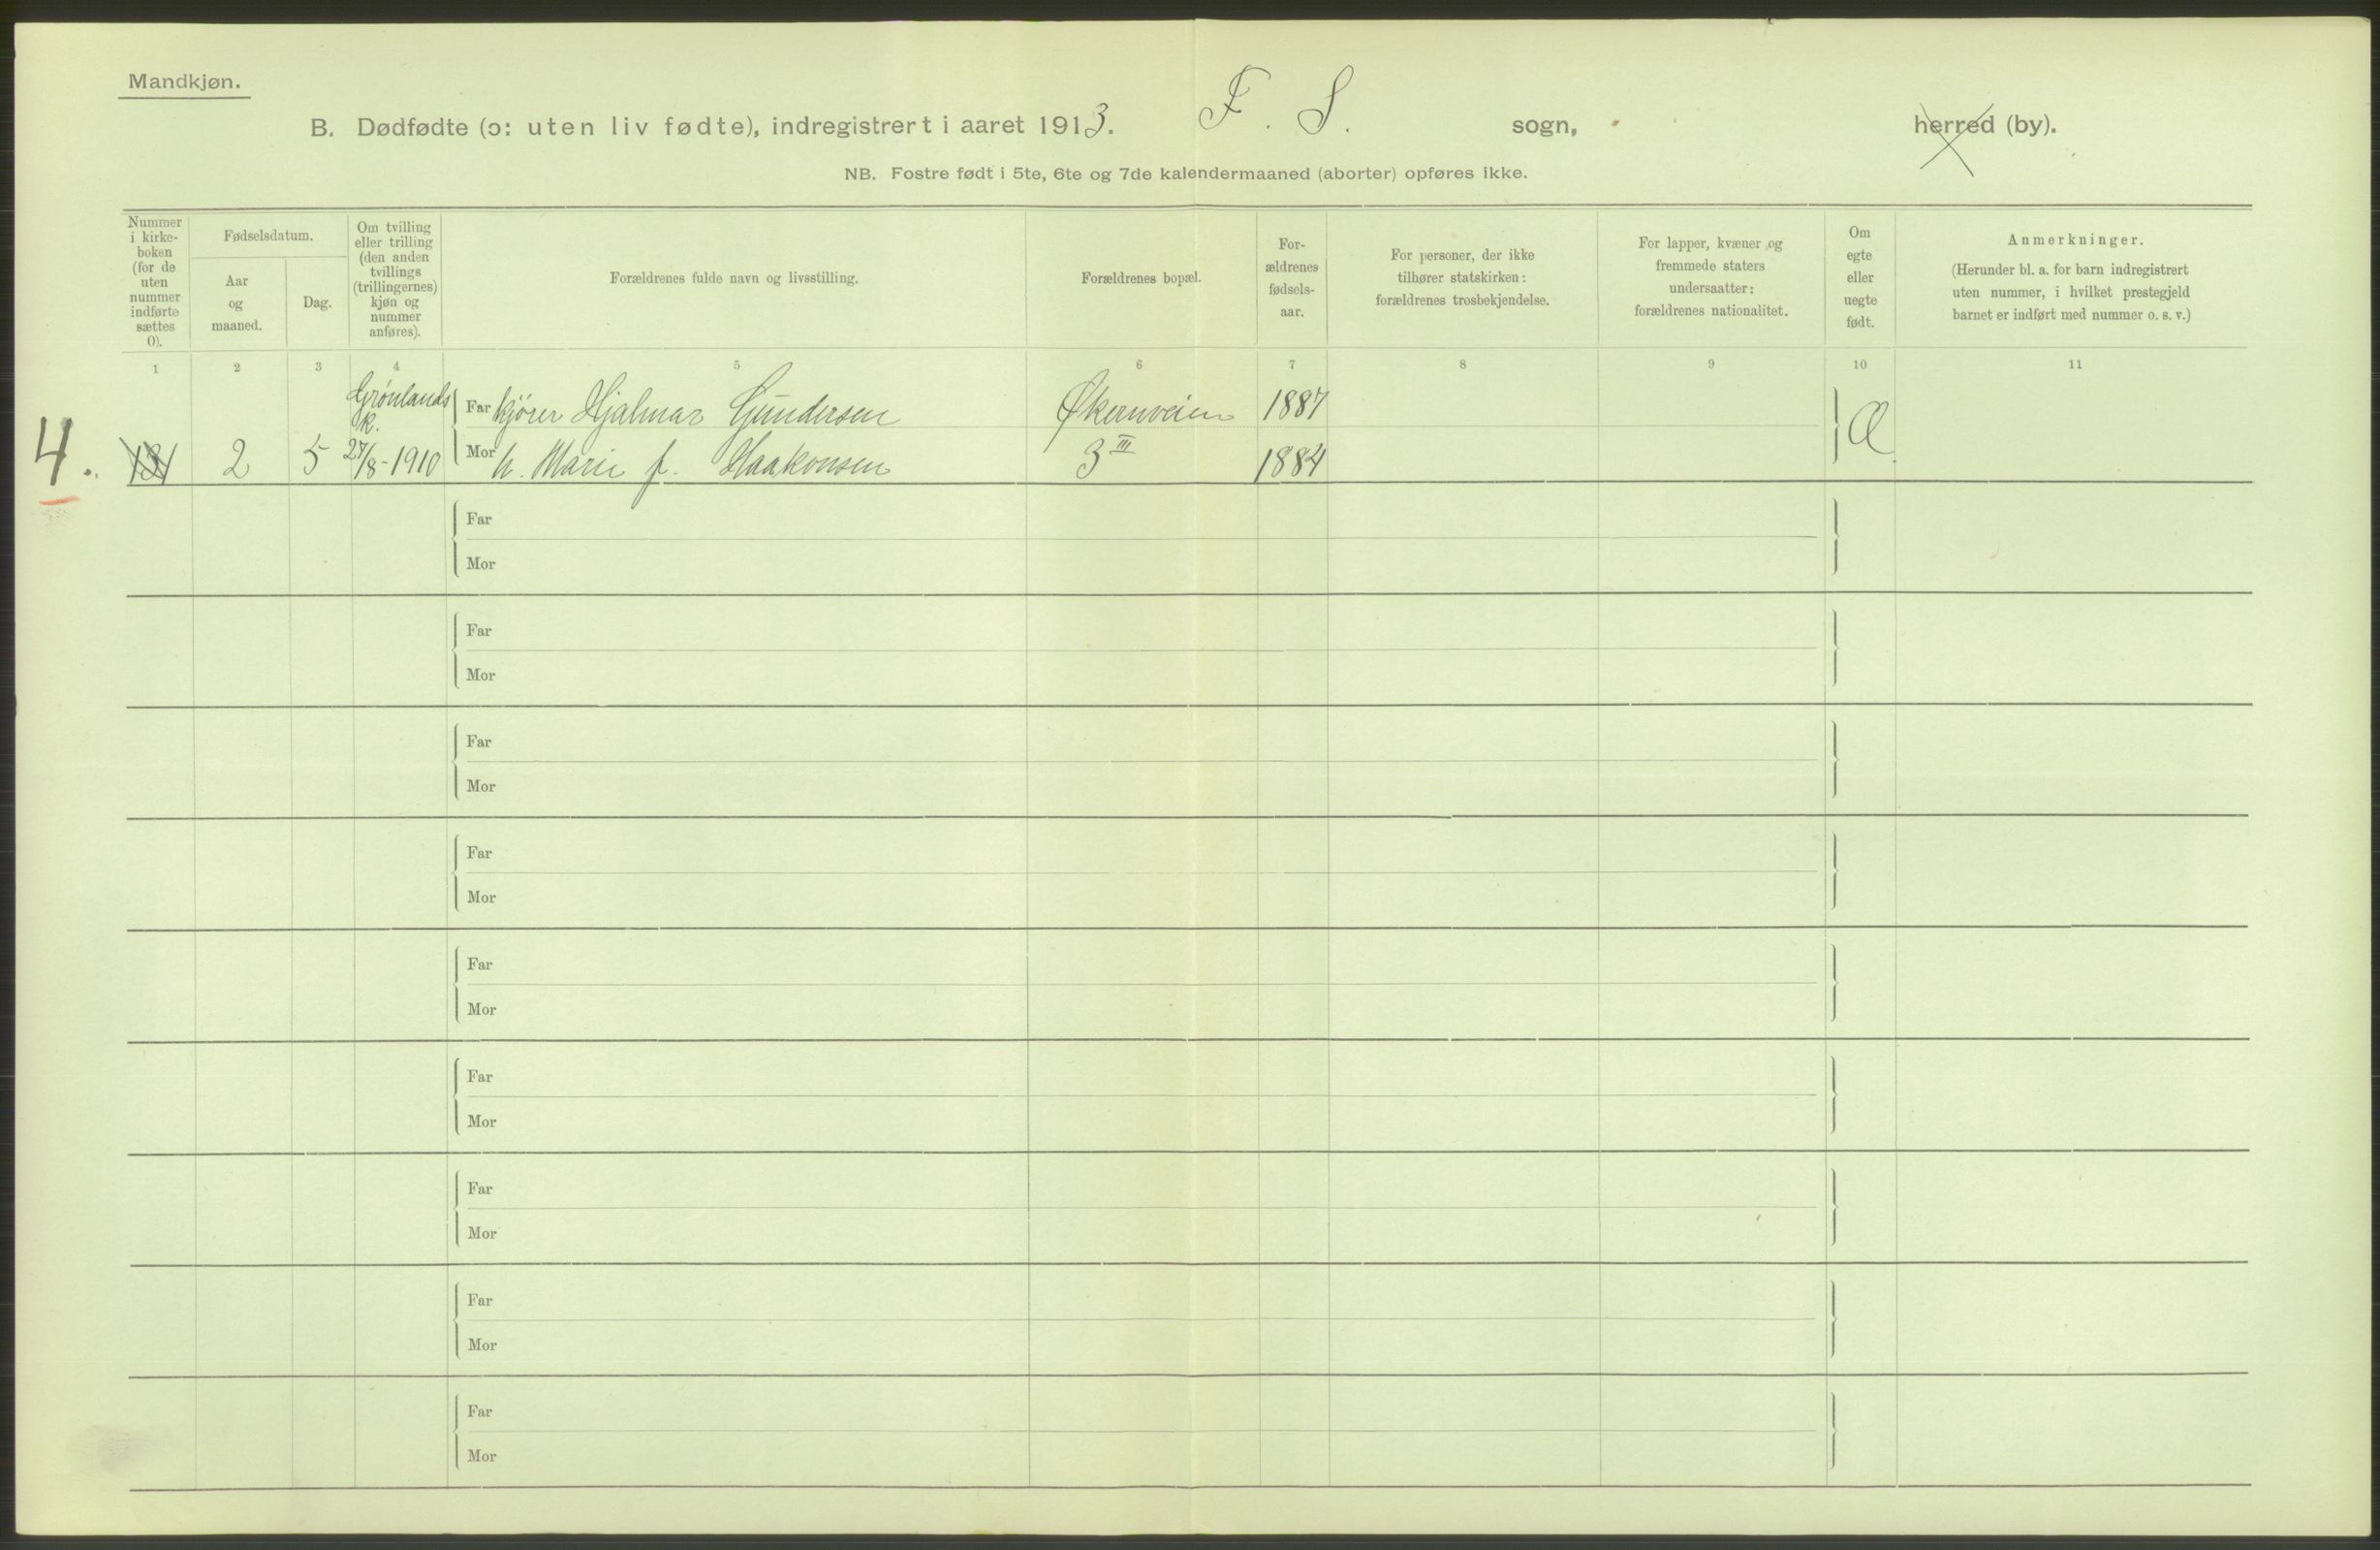 Mandkjøn.
B. Dødfødte (ɔ: uten liv fødte), indregistrert i aaret 1913. F. S. sogn, herred (by).
NB. Fostre født i 5te, 6te og 7de kalendermaaned (aborter) opføres ikke.
Nummer
i kirke-
boken
(for de
uten
nummer
indførte
sættes
0).
Fødselsdatum.
Aar
og
maaned.
Dag.
Om tvilling
eller trilling
(den anden
tvillings
(trillingernes)
kjøn og
nummer
anføres).
Forældrenes fulde navn og livsstilling.
Forældrenes bopæl.
For-
ældrenes
fødsels-
aar.
For personer, der ikke
tilhører statskirken:
forældrenes trosbekjendelse.
For lapper, kvæner og
fremmede staters
undersaatter:
forældrenes nationalitet.
Om
egte
eller
uegte
født.
Anmerkninger.
(Herunder bl. a. for barn indregistrert
uten nummer, i hvilket prestegjeld
barnet er indført med nummer o. s. v.)
1 2 3 4 5 6 7 8 9 10 11
Grønlands
k.
Far kjører Hjalmar Gundersen Økernveien 1887
4. 2 5 27/8-1910 Mor h. Marie f. Haakonsen 3 III 1884 Æ
Far
Mor
Far
Mor
Far
Mor
Far
Mor
Far
Mor
Far
Mor
Far
Mor
Far
Mor
Far
Mor